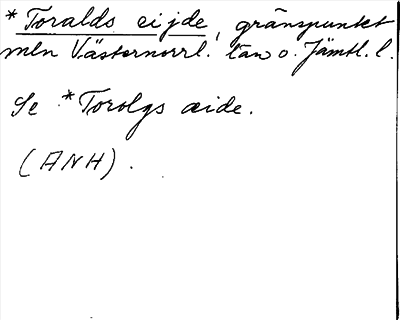 * Toralds eijde, gränspunkt
mln Västernorrl. län o. Jämtl. l.
Se * Torolgs æide.
(ANH).